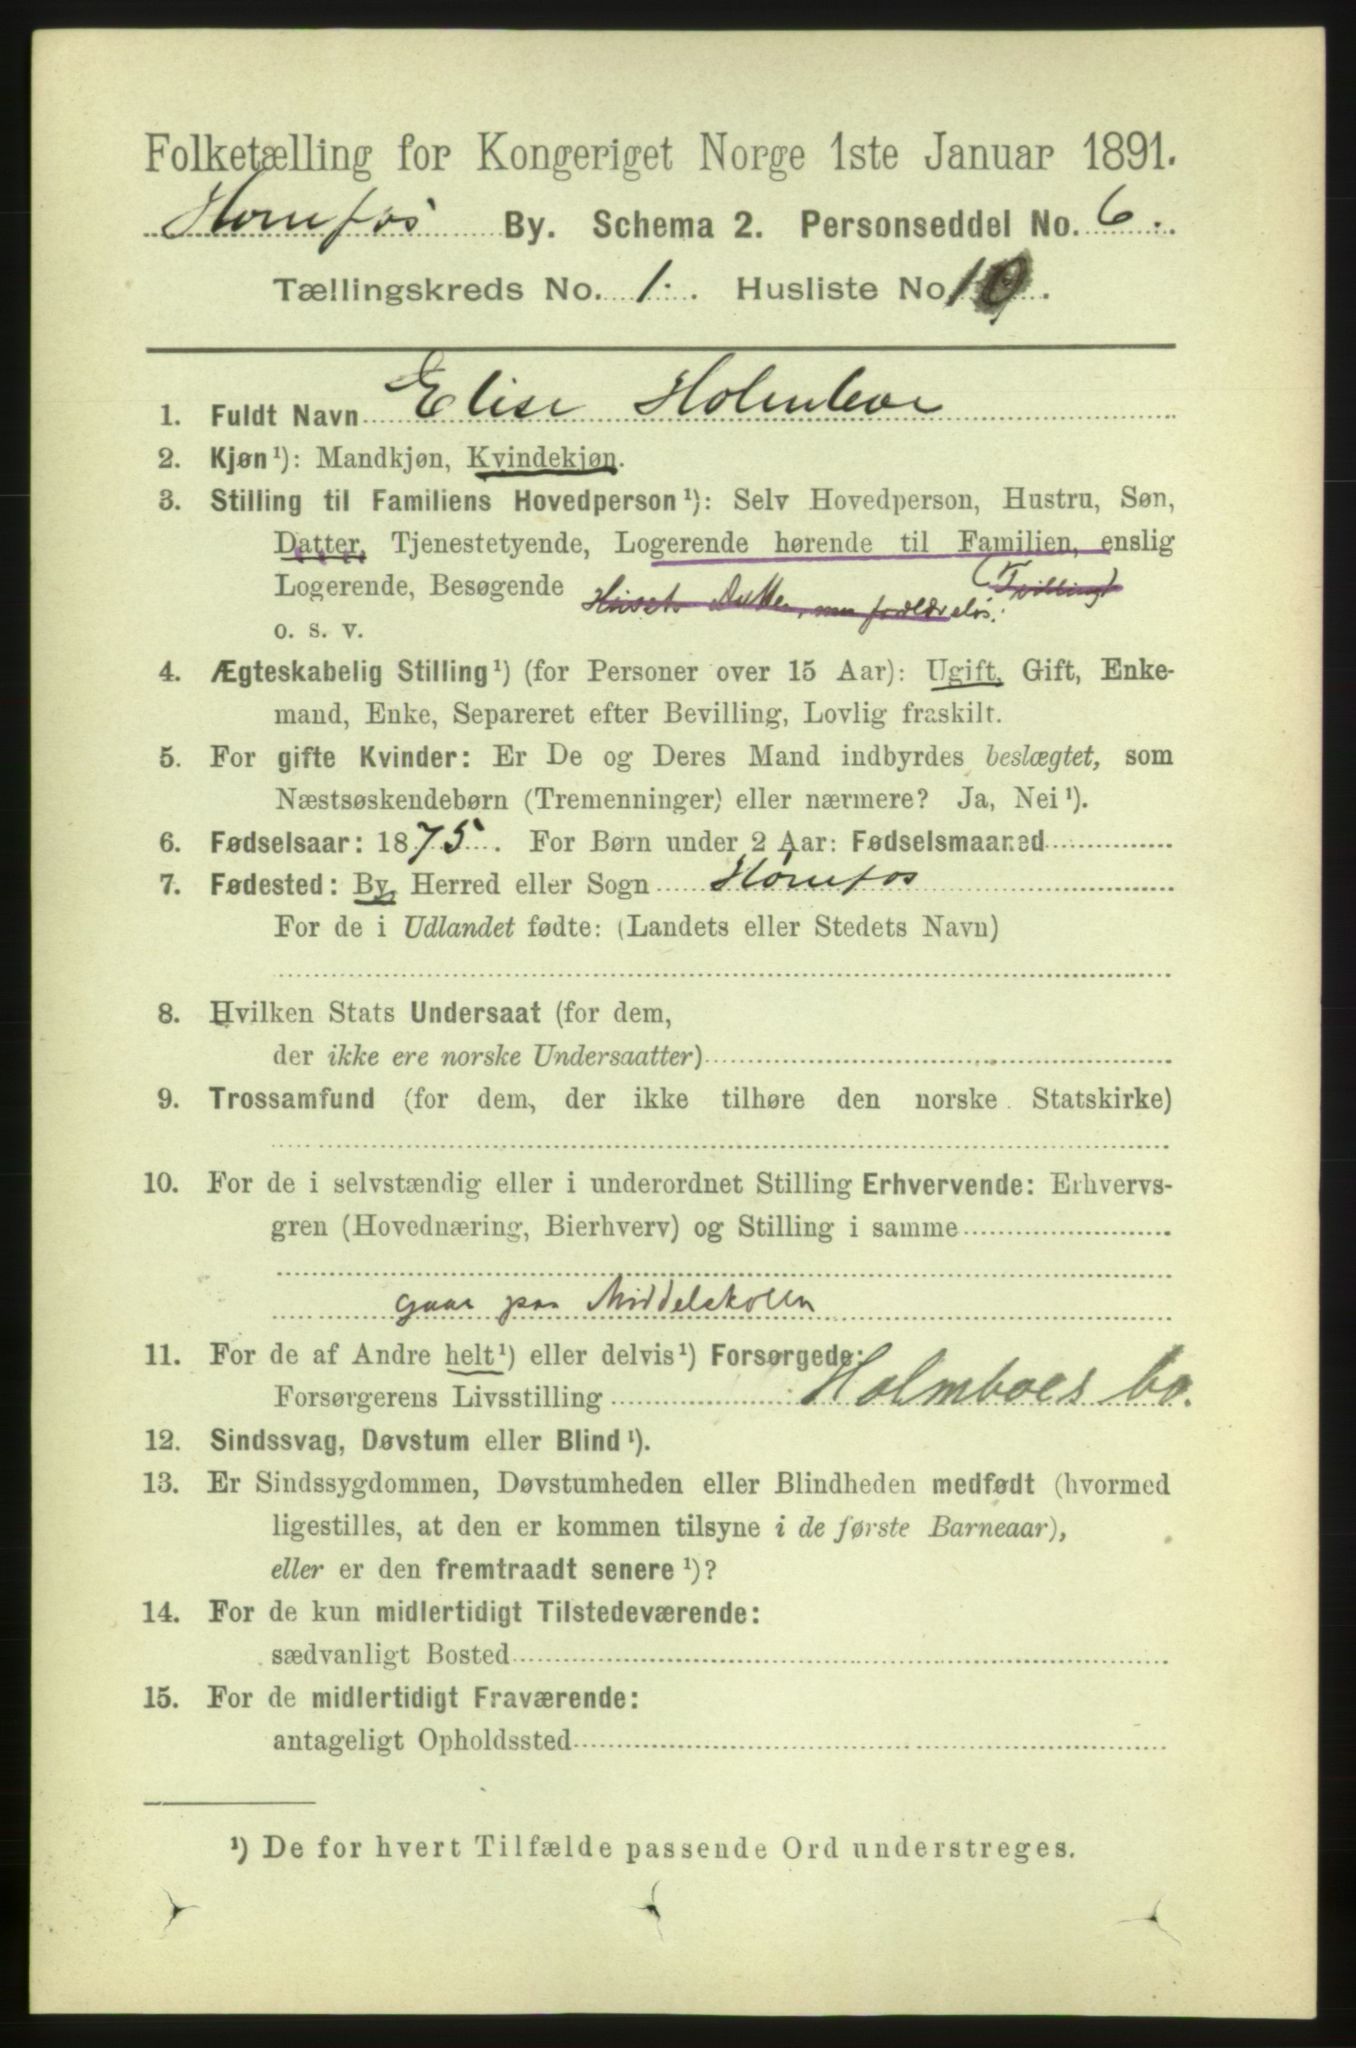 Folketælling for Kongeriget Norge 1ste Januar 1891.
Hønefos By. Schema 2. Personseddel No. 6.
Tællingskreds No. 1. Husliste No 10.
1. Fuldt Navn Elise Holmboe
2. Kjøn¹): Mandkjøn, Kvindekjøn.
3. Stilling til Familiens Hovedperson¹): Selv Hovedperson, Hustru, Søn,
Datter, Tjenestetyende, Logerende hørende til Familien, enslig
Logerende, Besøgende Husets Datter, men forældreløs. (Tvilling)
o. s. v.
4. Ægteskabelig Stilling¹) (for Personer over 15 Aar): Ugift, Gift, Enke-
mand, Enke, Separeret efter Bevilling, Lovlig fraskilt.
5. For gifte Kvinder: Er De og Deres Mand indbyrdes beslægtet, som
Næstsøskendebørn (Tremenninger) eller nærmere? Ja, Nei¹).
6. Fødselsaar: 1875. For Børn under 2 Aar: Fødselsmaaned
7. Fødested: By, Herred eller Sogn Hønefos
For de i Udlandet fødte: (Landets eller Stedets Navn)
8. Hvilken Stats Undersaat (for dem,
der ikke ere norske Undersaatter)
9. Trossamfund (for dem, der ikke tilhøre den norske Statskirke)
10. For de i selvstændig eller i underordnet Stilling Erhvervende: Erhvervs-
gren (Hovednæring, Bierhverv) og Stilling i samme
gaar paa Middelskolen
11. For de af Andre helt¹) eller delvis¹) Forsørgede:
Forsørgerens Livsstilling Holmboes bo.
12. Sindssvag, Døvstum eller Blind¹).
13. Er Sindssygdommen, Døvstumheden eller Blindheden medfødt (hvormed
ligestilles, at den er kommen tilsyne i de første Barneaar),
eller er den fremtraadt senere¹)?
14. For de kun midlertidigt Tilstedeværende:
sædvanligt Bosted
15. For de midlertidigt Fraværende:
antageligt Opholdssted
¹) De for hvert Tilfælde passende Ord understreges.